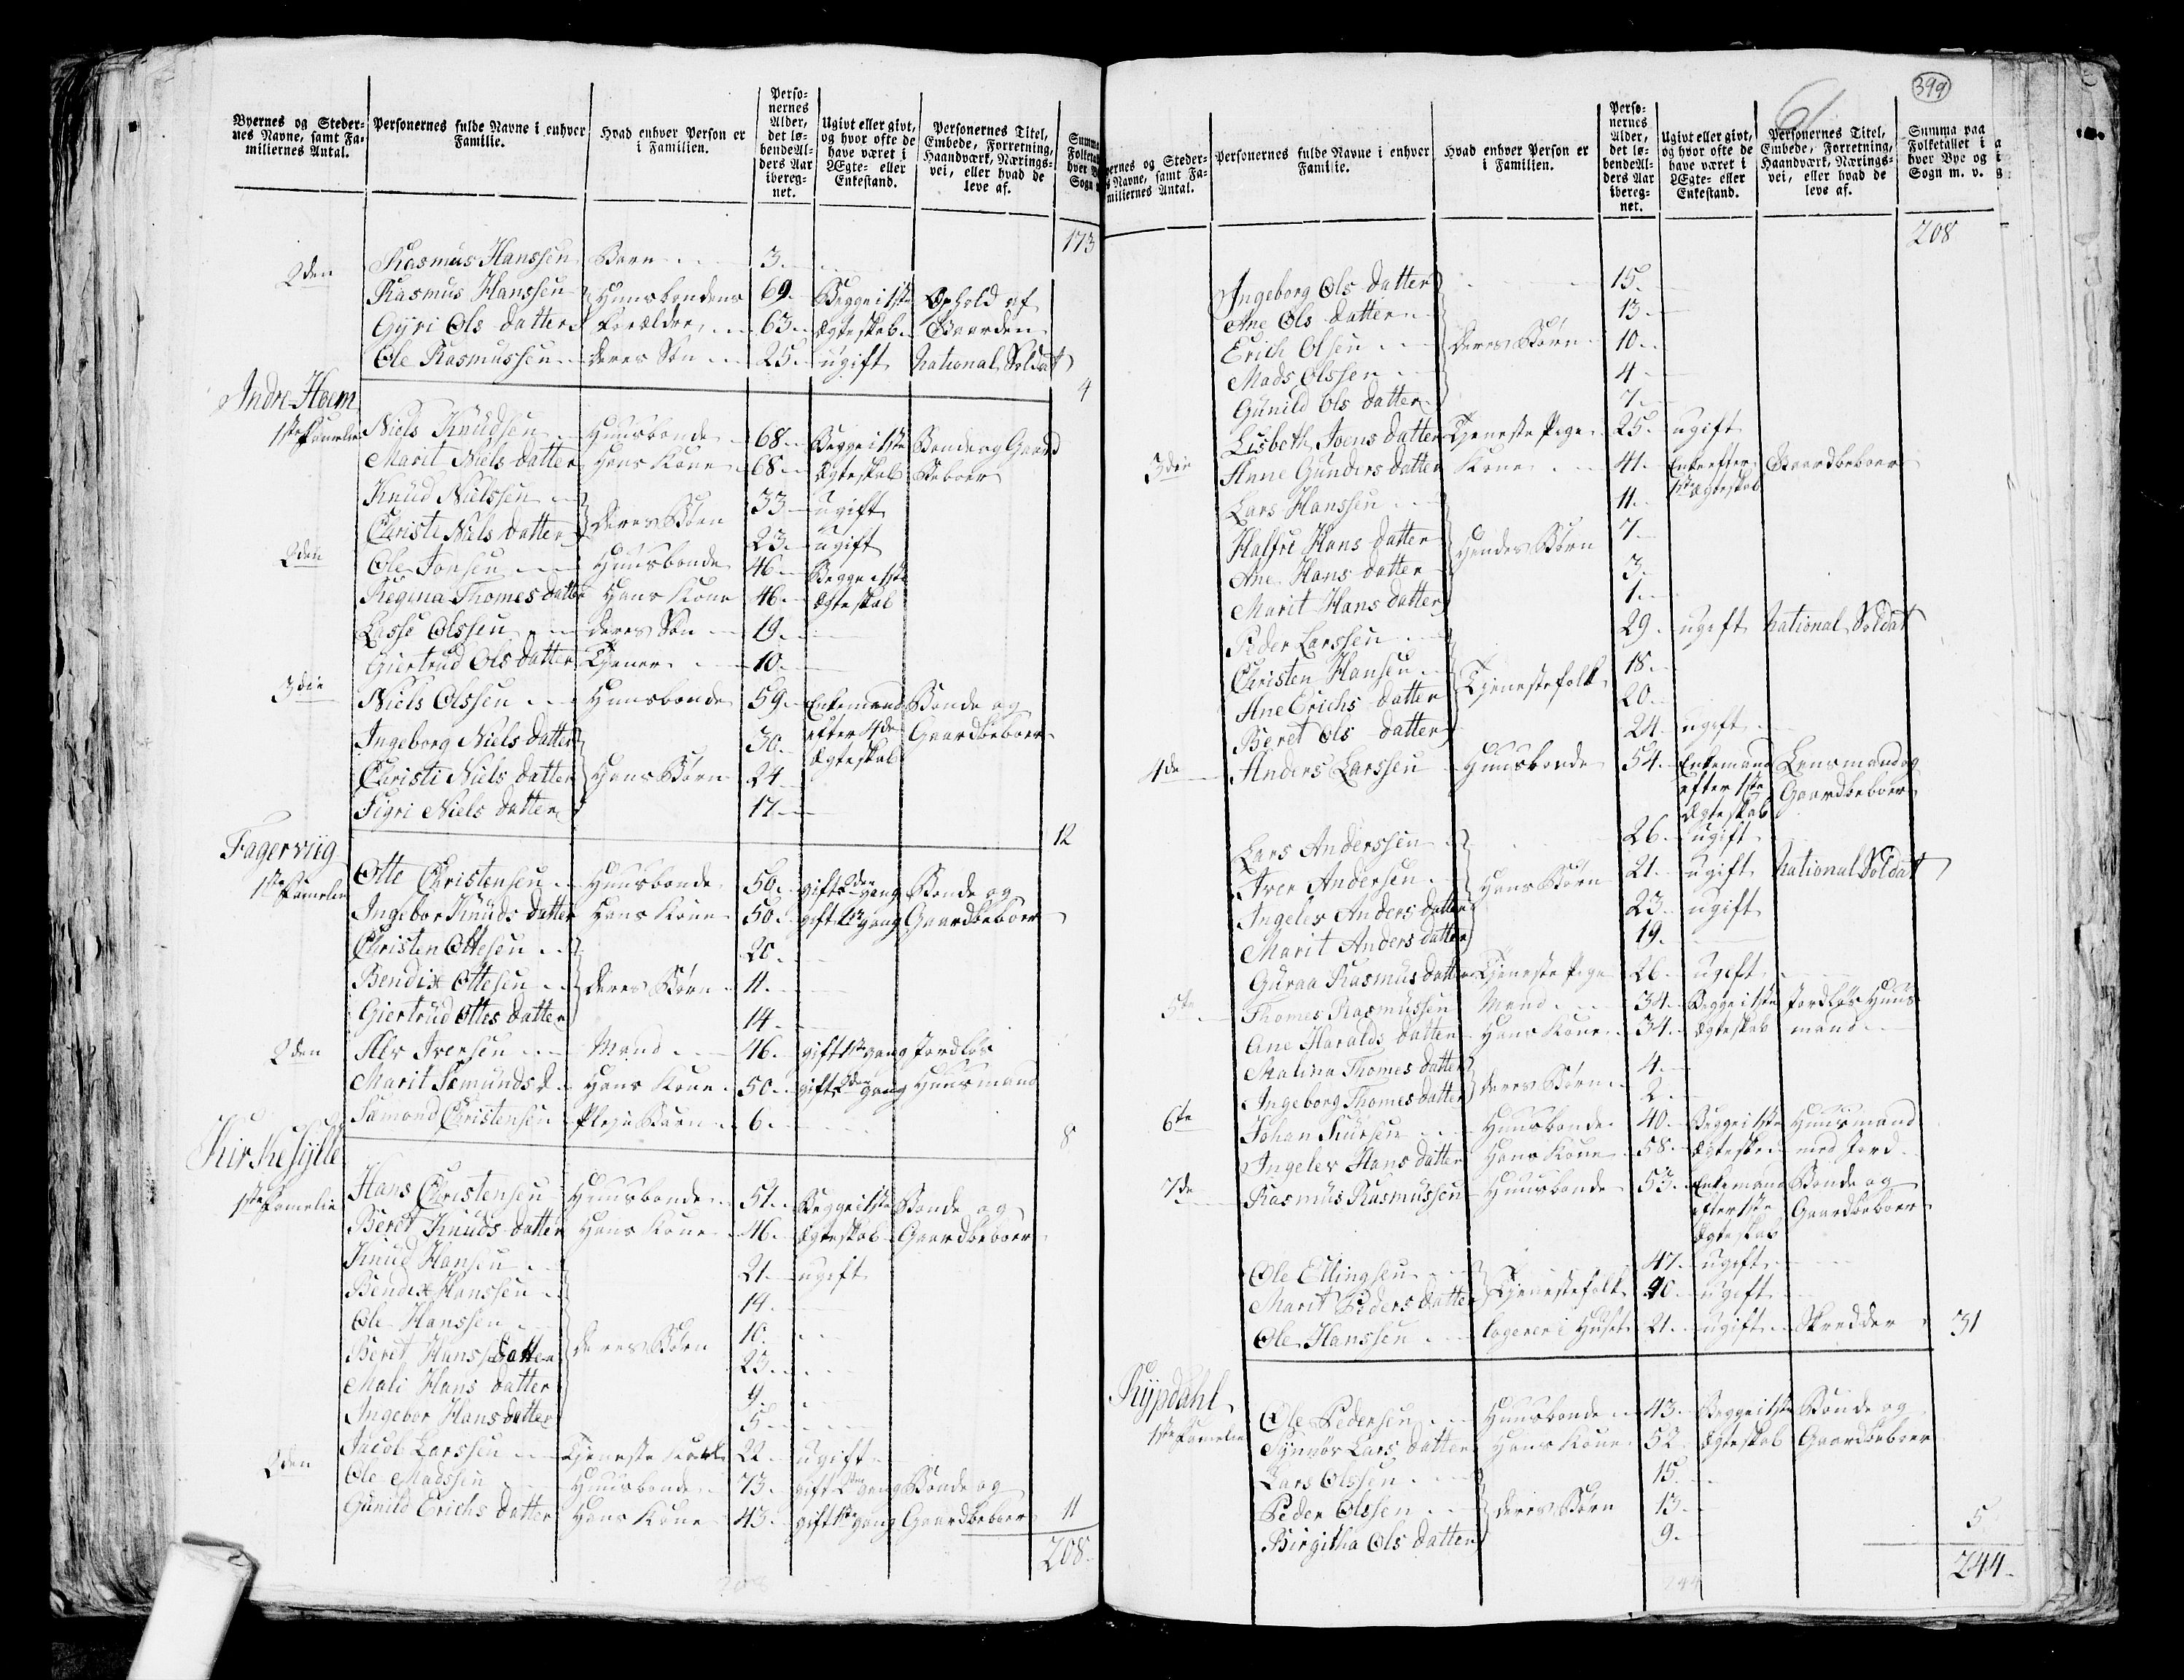 Byernes og Steder-
nes Navne, samt Fa-
miliernes Antal.
Personernes fulde Navne i enhver
Familie.
Hvad enhver Person er
i Familien.
Perso-
nernes
Alder,
det lø-
bende Al-
ders Aar
ibereg-
net.
Ugivt eller givt,
og hvor ofte de
have været i
Ægte- eller
Enkestand.
Personernes Titel,
Embede, Forretning,
Haandværk, Nærings-
vei, eller hvad de
leve af.
Summa
Folketal
hver B
Sogn
173
Rasmus Hanssen Barn 3
2den Rasmus Hanssen Huusbondens 69 Begge i 1ste Ophold af
Gyri Ols datter Forældre 63 Ægteskab Gaarden
Ole Rasmussen deres Søn 25 ugift National Soldat
4
Indre Hoem
1ste Famelie Niels Knudsen Huusbonde 68 Begge i 1ste Bonde og Gaard
Marit Niels datter Hans Kone 68 Ægteskab Beboer
Knud Nielssen 33 ugift
Christi Niels datter deres Børn 23 ugift
2den Ole Jonsen Huusbonde 46 Begge i 1ste
Regina Thomes datter Hans Kone 46 Ægteskab
Lasse Olssen deres Søn 19
Giertrud Ols datter Tjener 10
3die Niels Olssen Huusbonde 59 Enkemand Bonde og
Ingeborg Niels datter 30 efter 4de Gaardbeboer
Ægteskab
Christi Niels datter Hans Børn 24
Sigri Niels datter 17
12
Fagerviig
1ste Famelie Otte Christensen Huusbonde 50 gift 2den gang Bonde og
Ingebor Knuds datter Hans Kone 50 gift 1ste gang Gaardbeboer
Christen Ottesen 20
Bendix Ottesen deres Børn 11
Giertrud Ottes datter 14
2den Alv Iversen Mand 46 gift 1ste gang Jordløs
Marit Semunds d. Hans Kone 50 gift 2den gang Huusmand
Samond Christensen Pleje Barn 6
8
Kirkesylte
1ste Famelie Hans Christensen Huusbonde 51 Begge i 1ste Bonde og
Beret Knuds datter Hans Kone 46 Ægteskab Gaardbeboer
Knud Hansen 21 ugift
Bendix Hanssen 14
Ole Hanssen 10
Beret Hans datter deres Børn 23
Mali Hans datter 9
Ingebor Hans datter 5
Jacob Larssen Tjeneste Karl 22 ugift
2den Ole Madssen Huusbonde 73 gift gang Bonde og
Gunild Erichs datter Hans Kone 43 gift 1ste gang Gaardbeboer 11
208
208
399
61
ernes og Steder-
s Navne, samt Fa-
miliernes Antal.
Personernes fulde Navne i enhver
Familie.
Hvad enhver Person er
i Familien.
Perso-
nernes
Alder,
det lø-
bende Al-
ders Aar
ibereg-
net.
Ugivt eller givt,
og hvor ofte de
have været i
Ægte- eller
Enkestand.
Personernes Titel,
Embede, Forretning,
Haandværk, Nærings-
vei, eller hvad de
leve af.
Summa paa
Folketallet i
hver Bye og i
Sogn m. v.
208
Ingeborg Ols datter 15
Ane Ols datter 13
Erich Olsen deres Børn 10
Mads Olssen 4
Gunild Ols datter 7
Lisbeth Joens datter Tjeneste Pige 25 ugift
3die Anne Gunders datter Kone 41 Enke efter Gaardbeboer
1ste Ægteskab
Lars Hanssen 11
Halfri Hans datter Hendes Børn 7
Ane Hans datter 3
Marit Hans datter 1
Peder Larssen 29 ugift National Soldat
Christen Hansen 18
Ane Erichs datter Tjenestefolk 20
Beret Ols datter 24 ugift
4de Anders Larssen Huusbonde 54 Enkemand Lensmand og
efter 1ste Gaardbeboer
Ægteskab
Lars Anderssen 26 ugift
Iver Andersen Hans Børn 21 ugift National Soldat
Ingelev Anders datter 23 ugift
Marit Anders datter 19
Guraa Rasmus datter Tjeneste Pige 26 ugift
5te Thomes Rasmussen Mand 34 Begge i 1ste Jordløs Huus
Ane Haralds datter Hans Kone 34 Ægteskab mand
Malina Thomes datter 4
Ingeborg Thomes datter deres Børn 2
6te Johan Huusbonde 40 Begge i 1ste Huusmand
Ingelev Hans datter Hans Kone 58 Ægteskab med Jord
7de Rasmus Rasmussen Huusbonde 53 Enkemand Bonde og
efter 1ste Gaardbeboer
Ægteskab
Ole Ellingsen 47 ugift
Marit Peders datter Tjenestefolk 40 ugift
Ole Hanssen logerer i Huset 21 ugift Skredder 31
Rypdahl
1ste Famelie Ole Pedersen Huusbonde 43 Begge i 1ste Bonde og
Synnøv Lars datter Hans Kone 52 Ægteskab Gaardbeboer
Lars Olssen 15
Peder Olssen deres Børn 13
Birgitha Ols datter 9
5
244
244